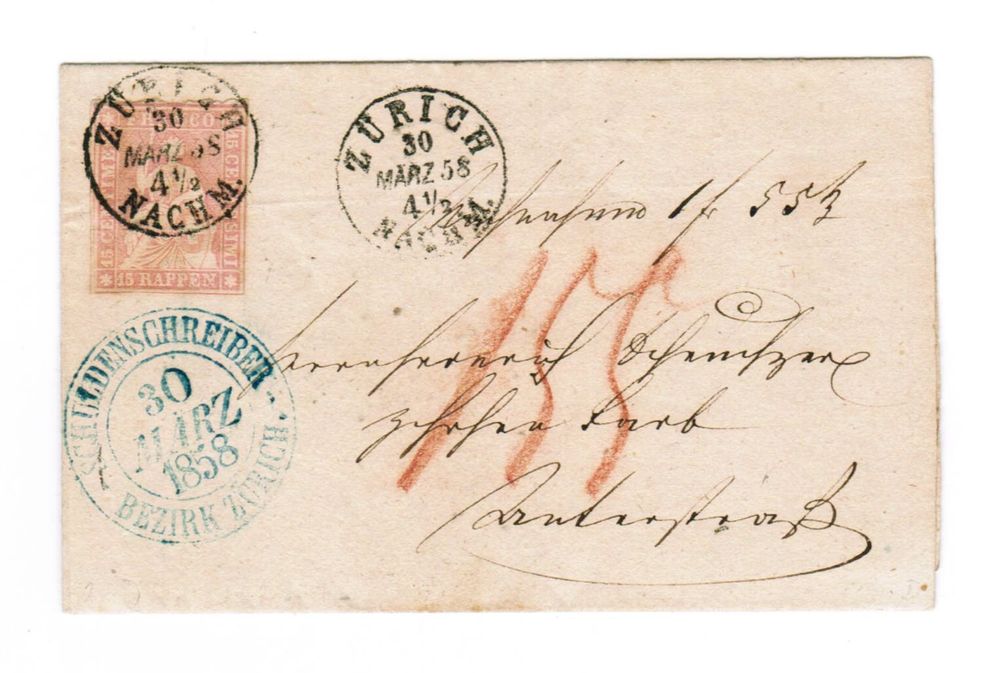 ZÜRICH
30
MÄRZ 58
4 1/2
NACHM.
FRANCO
15 CENTIMES
15 CENTESIMI
15 RAPPEN
ZÜRICH
30
MÄRZ 58
4 1/2
NACHM.
1 fr 55
155
Unterstraß
SCHULDENSCHREIBER
30
MÄRZ
1858
BEZIRK ZÜRICH.